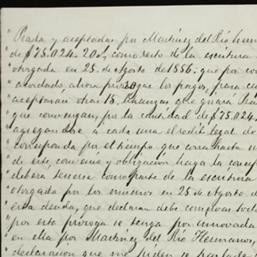 " Dada y aceptada por Martinez del Rio herm
" de $75.024.20c, como resto de la escritura
" otorgada en 25 de Agosto de 1856, que por co
" acordado, ahora que los pagos, para cu
" aceptaran otras 15, libranzas que guara
" que convengan, por la cantidad de $75.024.
" agregandose a cada una el redito legal do
" corresponda por el tiempo que corra hasta
" de este, convenio y obligacion haga la comp
" debera tenerse como parte de la escritura
" otorgada por los mismos en 25 de Agosto de
" esta deuda, que declaran debe
" por esta proroga se tenga por innovada
" en ella por Martinez del Rio Hermanos,
" declaracion que no piden se